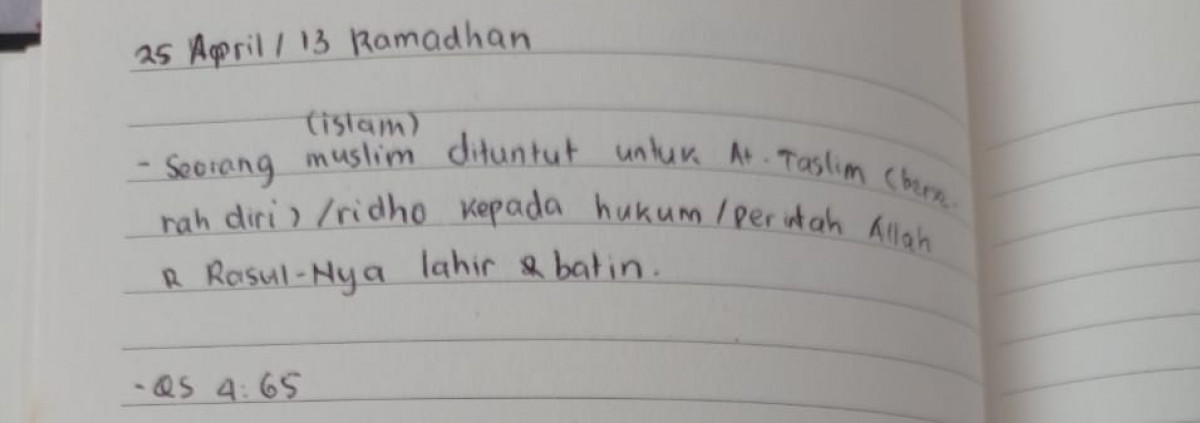 25 April / 13 Ramadhan
(islam)
- Seorang muslim dituntut untuk At-Taslim
rah diri) / ridho kepada hukum / perintah Allah
& Rasul-Nya lahir & batin.
- QS 4: 65